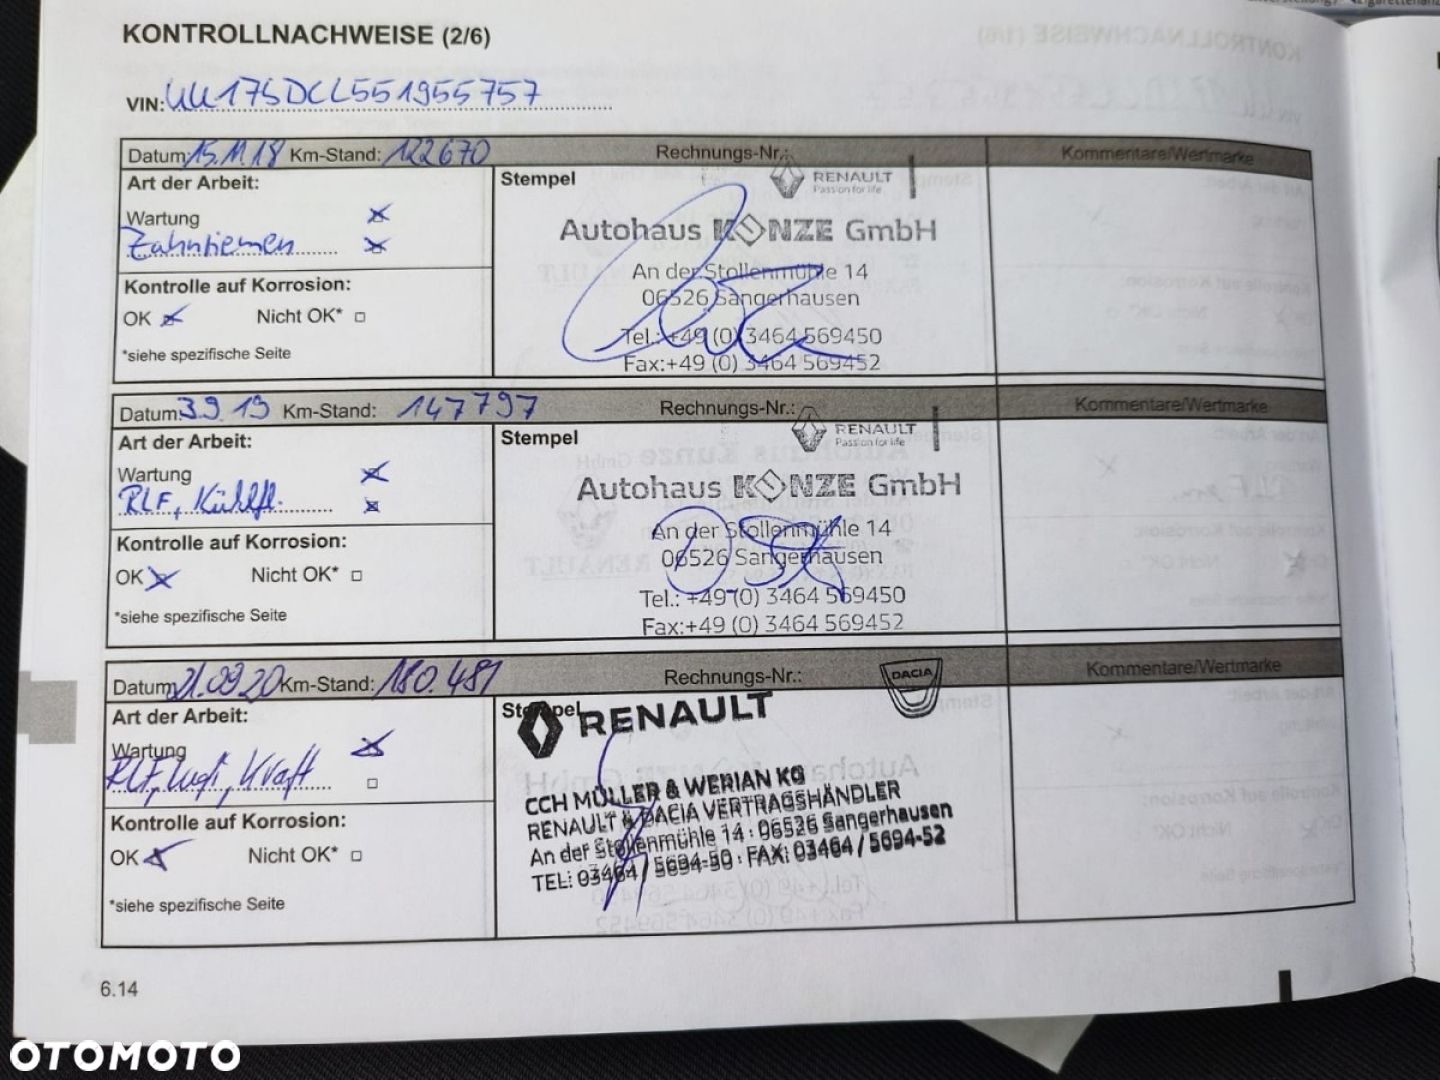 KONTROLLNACHWEISE (2/6)
VIN: UU17SDCL551955757
Datum: 15.11.18 Km-Stand: 122670 Rechnungs-Nr.: Kommentare/Wertmarke
Art der Arbeit:
Wartung
Zahnriemen
Kontrolle auf Korrosion:
OK Nicht OK*
*siehe spezifische Seite
Stempel
RENAULT
Passion for life
Autohaus KUNZE GmbH
An der Stollenmühle 14
06526 Sangerhausen
Tel.: +49 (0) 3464 569450
Fax:+49 (0) 3464 569452
Datum: 3.9.19 Km-Stand: 147797 Rechnungs-Nr.: Kommentare/Wertmarke
Art der Arbeit:
Wartung
RLF, Kühlfl.
Kontrolle auf Korrosion:
OK Nicht OK*
*siehe spezifische Seite
Stempel
RENAULT
Passion for life
Autohaus KUNZE GmbH
An der Stollenmühle 14
06526 Sangerhausen
Tel.: +49 (0) 3464 569450
Fax:+49 (0) 3464 569452
Datum: 21.09.20 Km-Stand: 180.481 Rechnungs-Nr.: Kommentare/Wertmarke
Art der Arbeit:
Wartung
RLF, Luft, Kraft
Kontrolle auf Korrosion:
OK Nicht OK*
*siehe spezifische Seite
Stempel
RENAULT
DACIA
CCH MÜLLER & WERIAN KG
RENAULT & DACIA VERTRAGSHÄNDLER
An der Stollenmühle 14 : 06526 Sangerhausen
TEL: 03464 / 5694-50 : FAX: 03464 / 5694-52
6.14
OTOMOTO